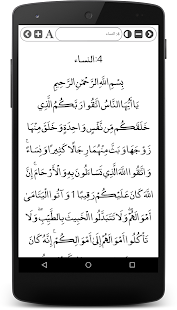 4. النساء
4:النساء
بِسْمِ اللَّهِ الرَّحْمَٰنِ الرَّحِيمِ
يَا أَيُّهَا النَّاسُ اتَّقُوا رَبَّكُمُ الَّذِي
خَلَقَكُم مِّن نَّفْسٍ وَاحِدَةٍ وَخَلَقَ مِنْهَا
زَوْجَهَا وَبَثَّ مِنْهُمَا رِجَالًا كَثِيرًا وَنِسَاءً ۚ
وَاتَّقُوا اللَّهَ الَّذِي تَسَاءَلُونَ بِهِ وَالْأَرْحَامَ ۚ إِنَّ
اللَّهَ كَانَ عَلَيْكُمْ رَقِيبًا 1 وَآتُوا الْيَتَامَىٰ
أَمْوَالَهُمْ ۖ وَلَا تَتَبَدَّلُوا الْخَبِيثَ بِالطَّيِّبِ ۖ وَلَا
تَأْكُلُوا أَمْوَالَهُمْ إِلَىٰ أَمْوَالِكُمْ ۚ إِنَّهُ كَانَ